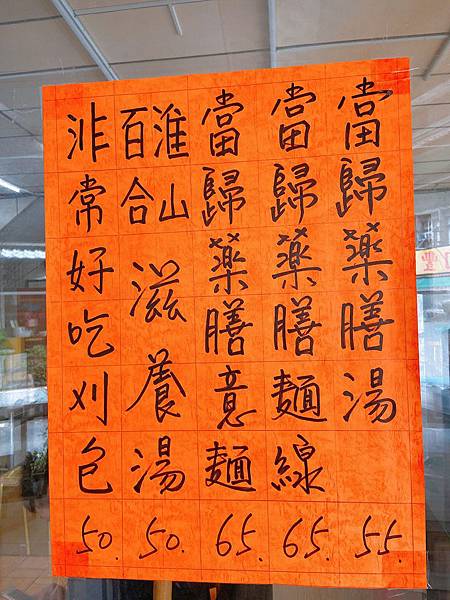 當歸藥膳湯 55.
當歸藥膳麵線 65.
當歸藥膳意麵 65.
淮山百合滋養湯 50.
非常好吃刈包 50.